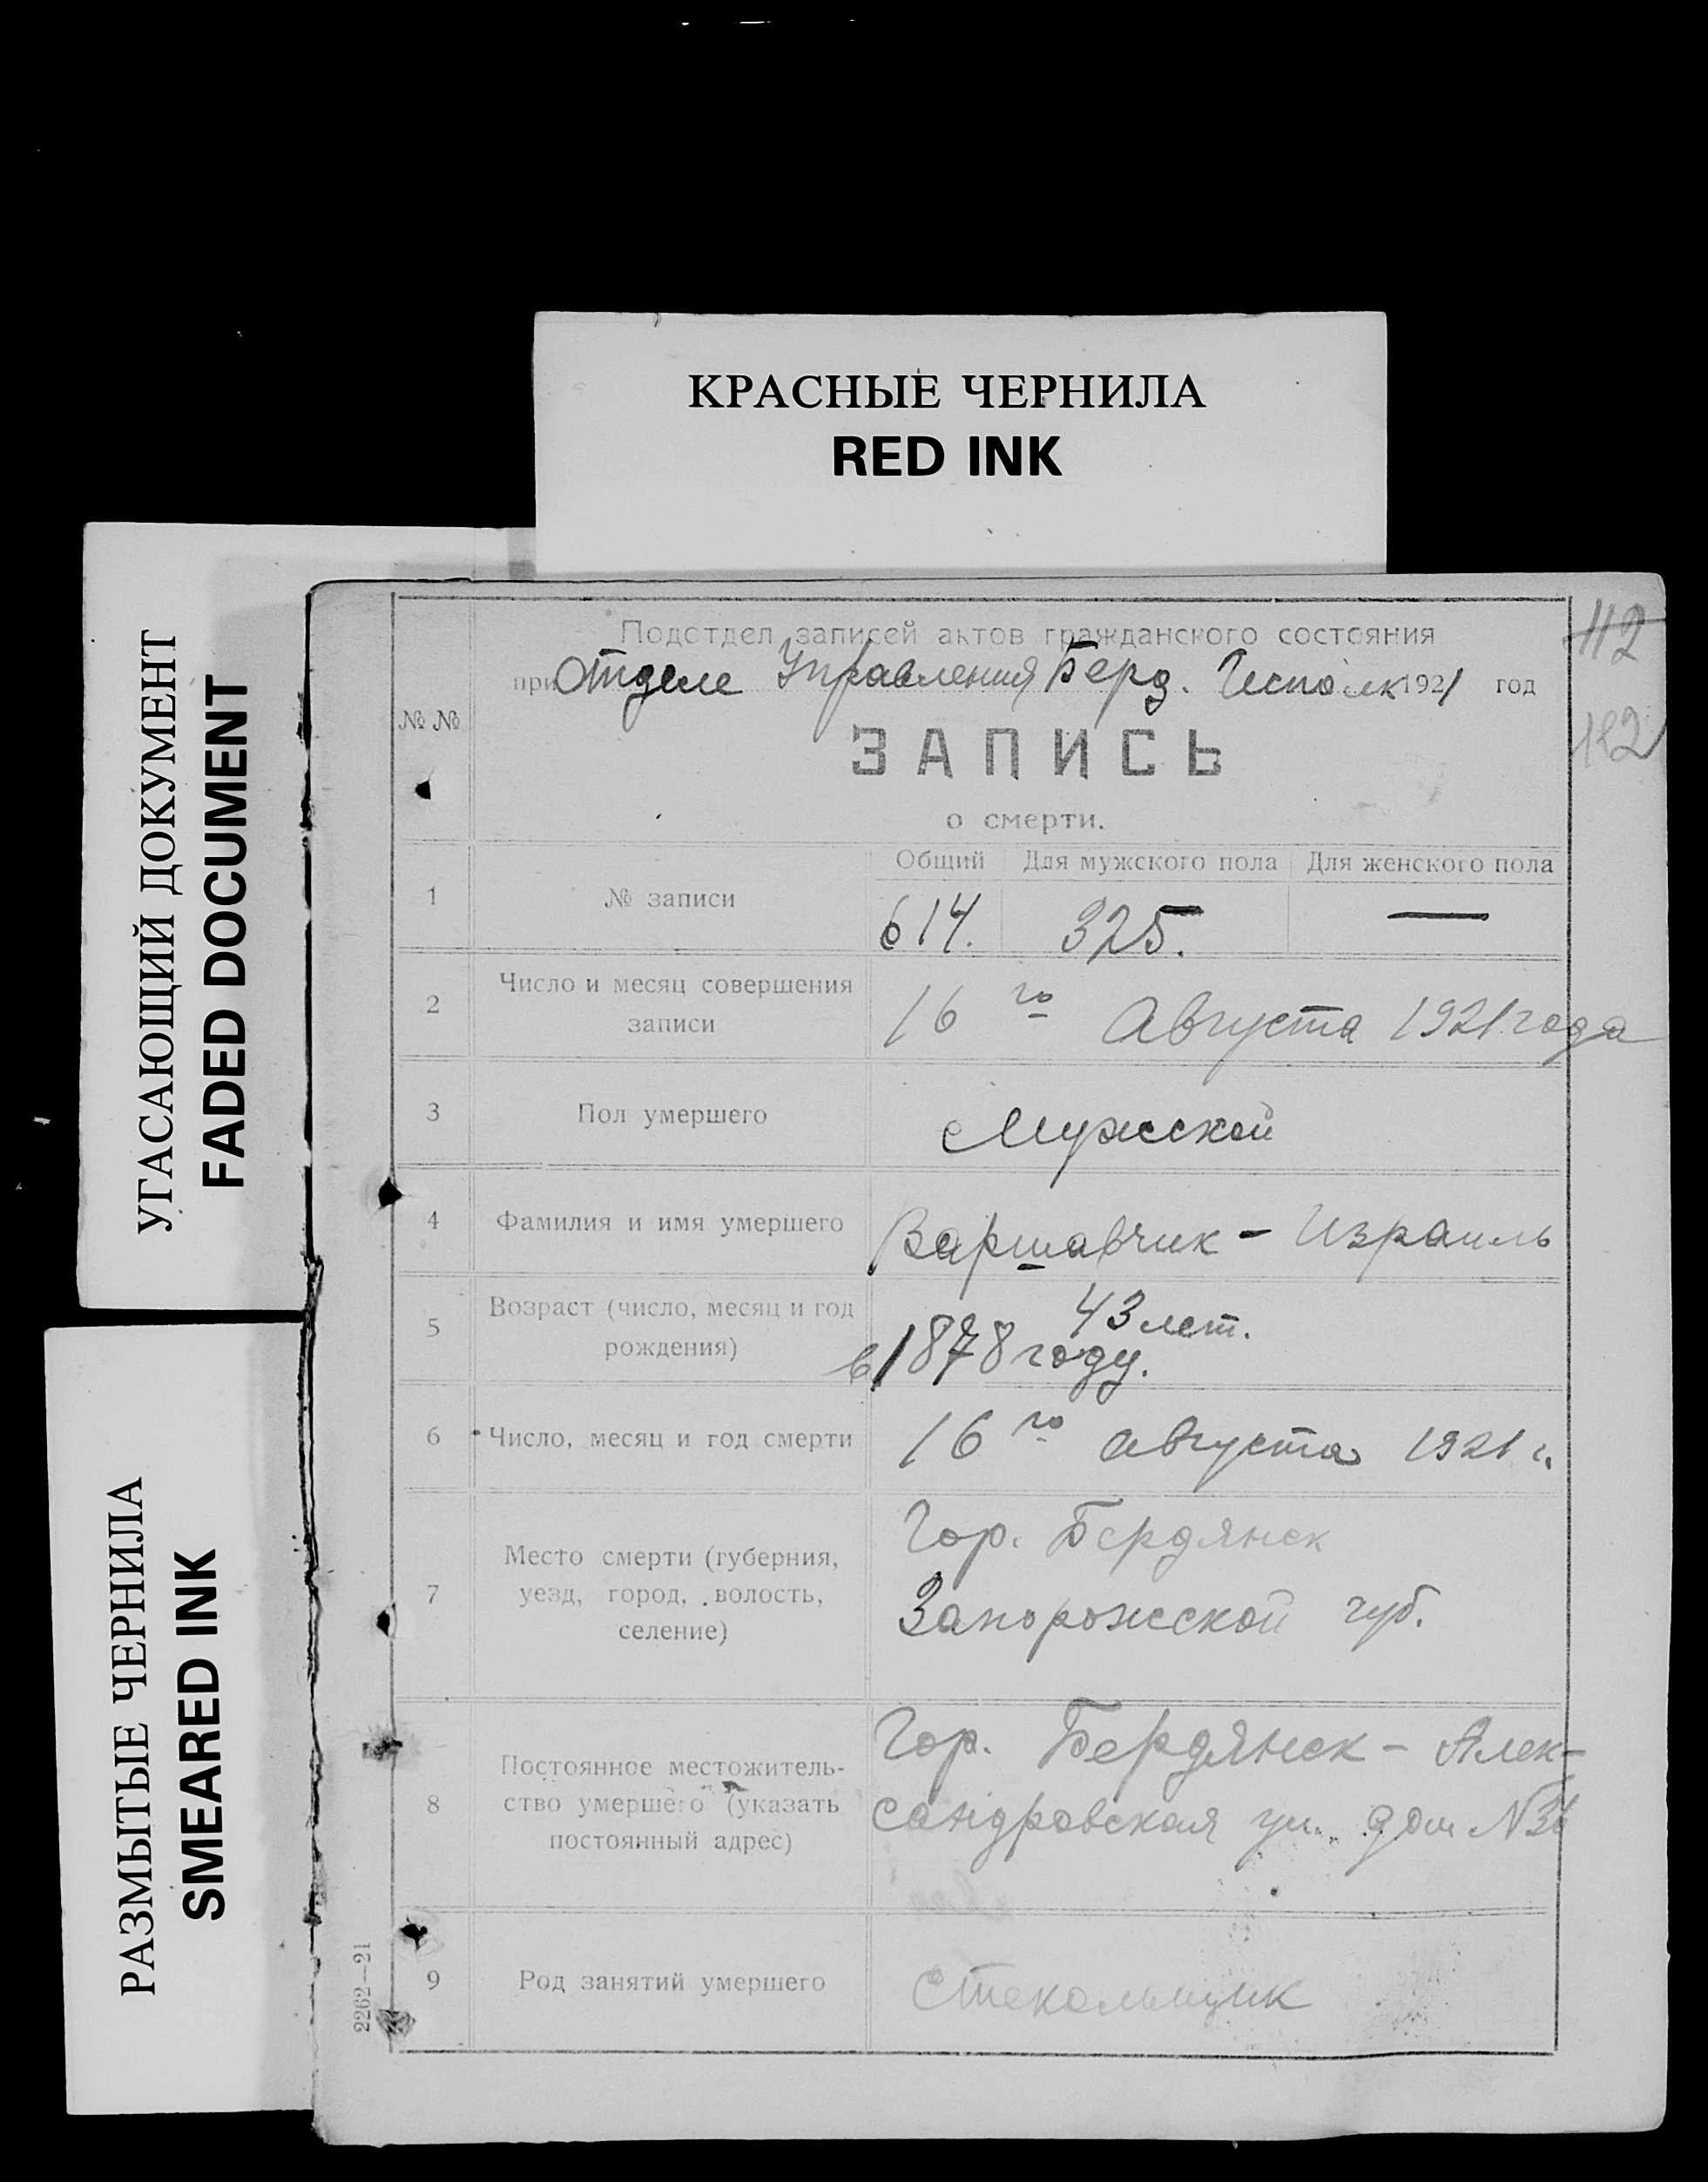 КРАСНЫЕ ЧЕРНИЛА
RED INK
УГАСАЮЩИЙ ДОКУМЕНТ
FADED DOCUMENT
РАЗМЫТЫЕ ЧЕРНИЛА
SMEARED INK
112
112
Подотдел записей актов гражданского состояния
при Отделе Управления Берд. Исполк 1921 год
№ №
ЗАПИСЬ
о смерти.
Общий Для мужского пола Для женского пола
1 № записи 614. 325. —
2 Число и месяц совершения
записи
16 го Августа 1921 года
3 Пол умершего Мужской
4 Фамилия и имя умершего Варшавчик - Израиль
5 Возраст (число, месяц и год
рождения)
43 лет.
в 1878 году.
6 Число, месяц и год смерти 16 го августа 1921 г.
7 Место смерти (губерния,
уезд, город, волость,
селение)
Гор. Бердянск
Запорожской губ.
8 Постоянное местожитель-
ство умершего (указать
постоянный адрес)
Гор. Бердянск - Алек-
сандровская ул. дом №
9 Род занятий умершего Стекольщик
2262—21